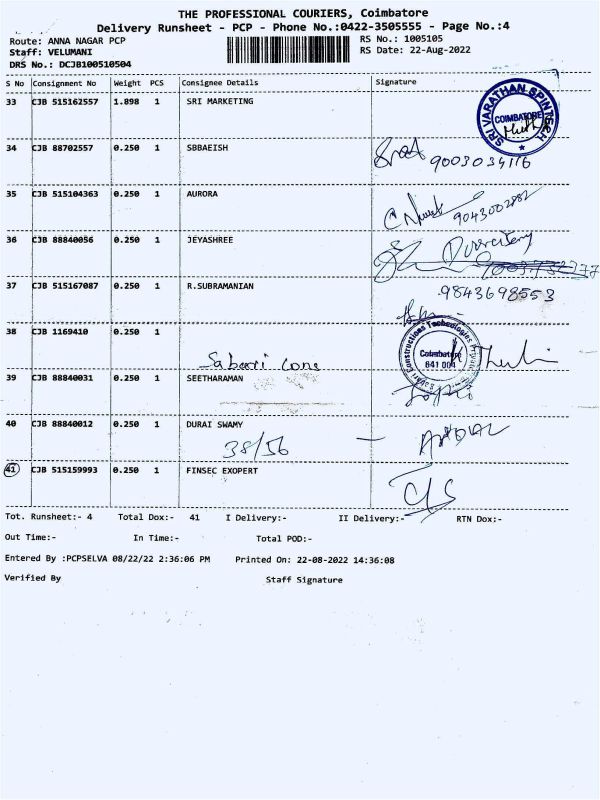 THE PROFESSIONAL COURIERS, Coimbatore
Delivery Runsheet - PCP - Phone No.:0422-3505555 - Page No.:4
Route: ANNA NAGAR PCP RS No.: 1005105
Staff: VELUMANI RS Date: 22-Aug-2022
DRS No.: DCJB100510504
S No Consignment No Weight PCS Consignee Details Signature
33 CJB 515162557 1.898 1 SRI MARKETING
SRI VARATHAN SPINTECH
COIMBATORE
34 CJB 88702557 0.250 1 SBBAEISH
9003034116
35 CJB 515104363 0.250 1 AURORA
9043002882
36 CJB 88840056 0.250 1 JEYASHREE
37 CJB 515167087 0.250 1 R.SUBRAMANIAN
9843698553
38 CJB 1169410 0.250 1
Sabari Cons
Coimbatore
641 004
39 CJB 88840031 0.250 1 SEETHARAMAN
40 CJB 88840012 0.250 1 DURAI SWAMY
38/56
41 CJB 515159993 0.250 1 FINSEC EXOPERT
Tot. Runsheet:- 4 Total Dox:- 41 I Delivery:- II Delivery:- RTN Dox:-
Out Time:- In Time:- Total POD:-
Entered By :PCPSELVA 08/22/22 2:36:06 PM Printed On: 22-08-2022 14:36:08
Verified By Staff Signature